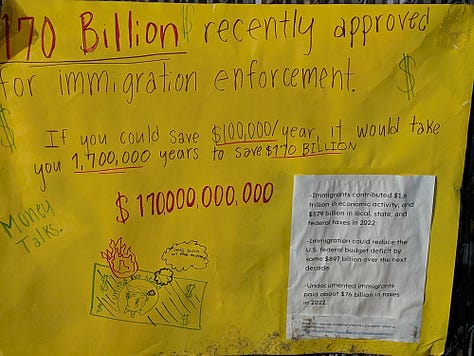 170 Billion $ recently approved
for immigration enforcement.
$
$
If you could save $100,000/year, it would take
you 1,700,000 years to save $170 BILLION
$170,000,000,000
Money
Talks.
-Immigrants contributed $1.6
trillion in economic activity, and
$579 billion in local, state, and
federal taxes in 2022
-Immigration could reduce the
U.S. federal budget deficit by
some $897 billion over the next
decade.
-Undocumented immigrants
paid about $76 billion in taxes
in 2022